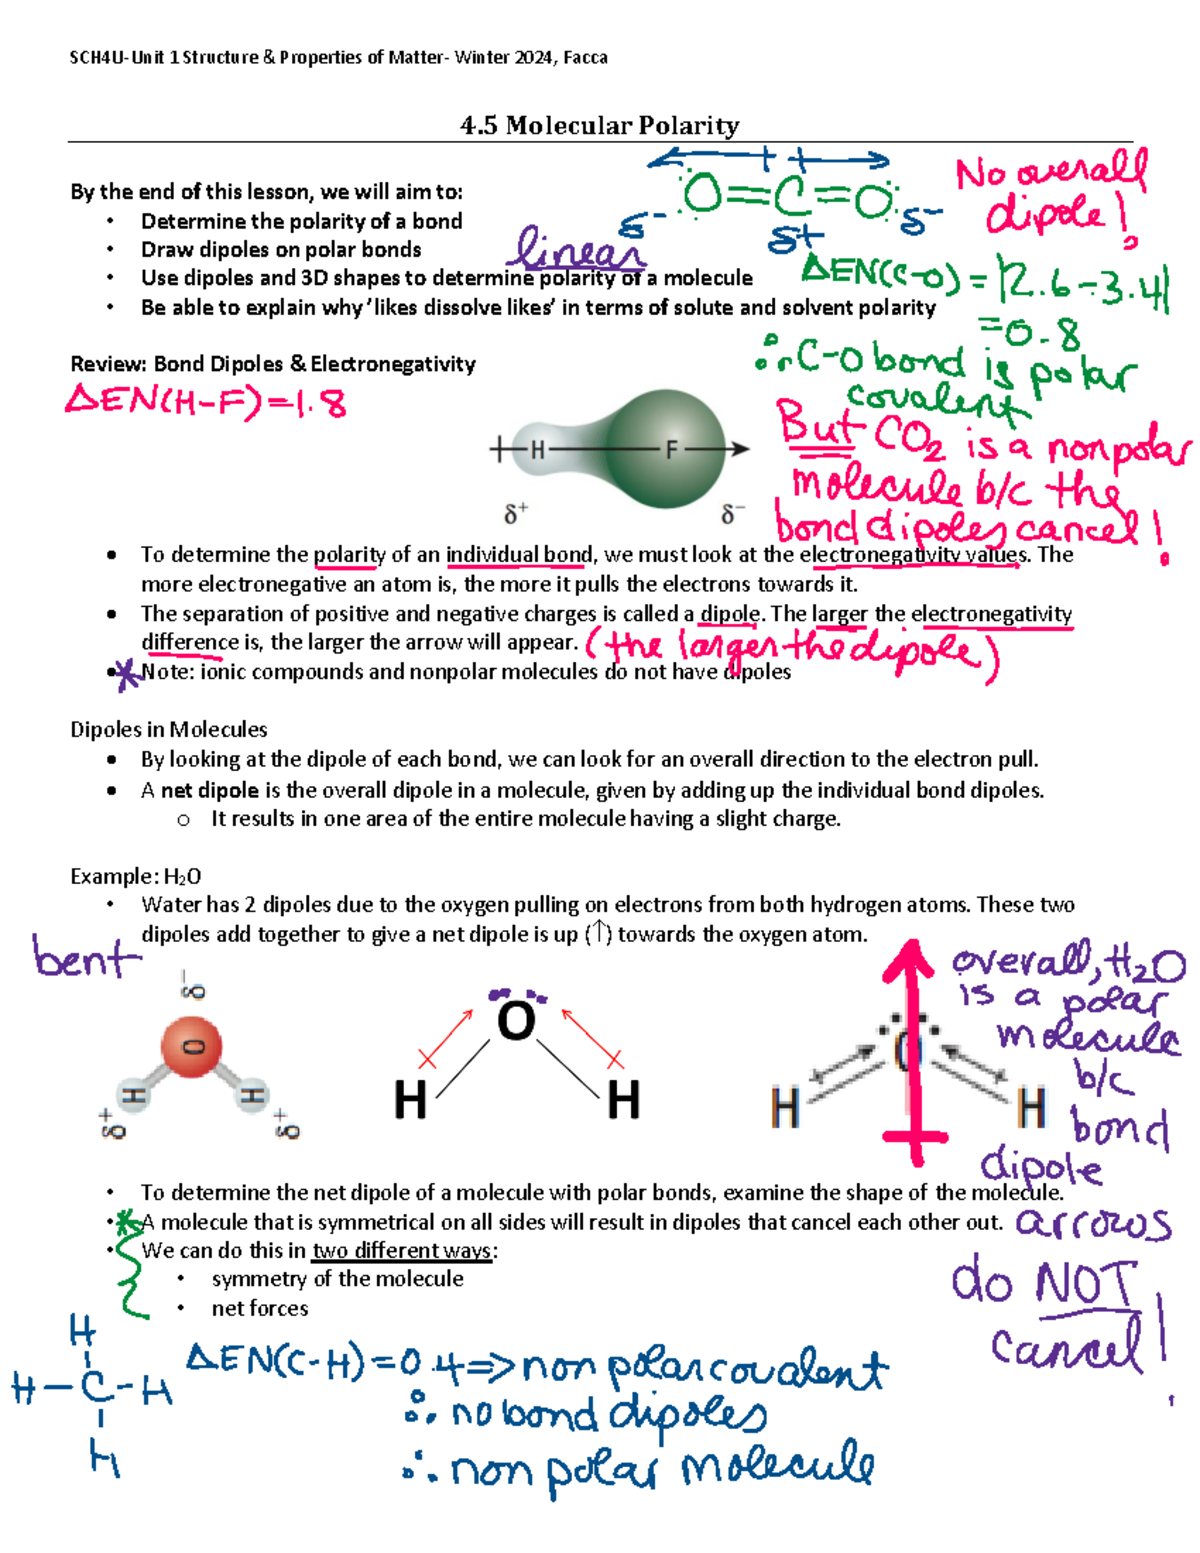 SCH4U-Unit 1 Structure & Properties of Matter- Winter 2024, Facca
4.5 Molecular Polarity
By the end of this lesson, we will aim to:
• Determine the polarity of a bond
• Draw dipoles on polar bonds
• Use dipoles and 3D shapes to determine polarity of a molecule
• Be able to explain why 'likes dissolve likes' in terms of solute and solvent polarity
linear
O=C=O
δ- δ+ δ-
No overall
dipole!
ΔEN(C-O) = |2.6-3.4|
=0.8
∴ C-O bond is polar
covalent
But CO2 is a nonpolar
molecule b/c the
bond dipoles cancel!
Review: Bond Dipoles & Electronegativity
ΔEN(H-F)=1.8
H F
δ+ δ−
• To determine the polarity of an individual bond, we must look at the electronegativity values. The
more electronegative an atom is, the more it pulls the electrons towards it.
• The separation of positive and negative charges is called a dipole. The larger the electronegativity
difference is, the larger the arrow will appear. (the larger the dipole)
• * Note: ionic compounds and nonpolar molecules do not have dipoles
Dipoles in Molecules
• By looking at the dipole of each bond, we can look for an overall direction to the electron pull.
• A net dipole is the overall dipole in a molecule, given by adding up the individual bond dipoles.
o It results in one area of the entire molecule having a slight charge.
Example: H₂O
• Water has 2 dipoles due to the oxygen pulling on electrons from both hydrogen atoms. These two
dipoles add together to give a net dipole is up (↑) towards the oxygen atom.
bent
δ−
O
H H
δ+ δ+
O
H H
O
H H
overall, H2O
is a polar
molecule
b/c
bond
dipole
arrows
do NOT
cancel!
• To determine the net dipole of a molecule with polar bonds, examine the shape of the molecule.
• * A molecule that is symmetrical on all sides will result in dipoles that cancel each other out.
• We can do this in two different ways:
• symmetry of the molecule
• net forces
H
H-C-H
H
ΔEN(C-H)=0.4=>non polar covalent
∴ no bond dipoles
∴ non polar molecule